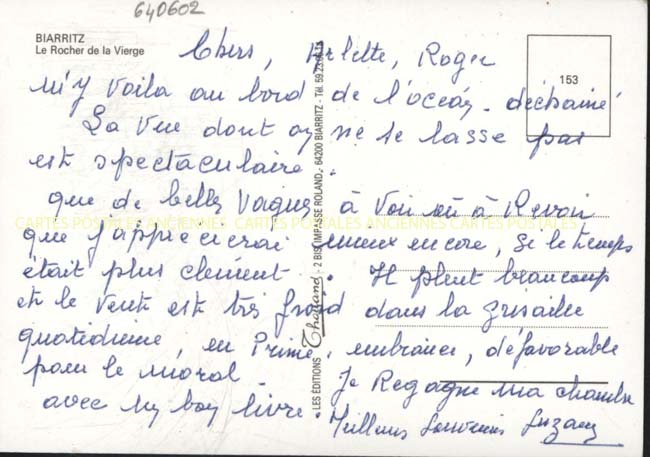 640602
BIARRITZ
Le Rocher de la Vierge
153
Chers, Arlette, Roger
m'y voila au bord de l'océan déchainé
La vue dont on ne se lasse pas
est spectaculaire.
que de belles vagues à voir ou à Revoir
que j'apprécierai mieux encore, si le temps
était plus clément. Il pleut beaucoup
et le vent est très froid dans la grisaille
quotidienne, en Prime, défavorable
pour le moral. Je Regagne ma chambre
avec un bon livre.
Meilleurs Souvenirs Suzany
LES EDITIONS Thouand - 2 BIS, IMPASSE ROLAND, 64200 BIARRITZ - Tél. 59.23
CARTES POSTALES ANCIENNES CARTES POSTALES ANCIENNES CARTES POSTALES